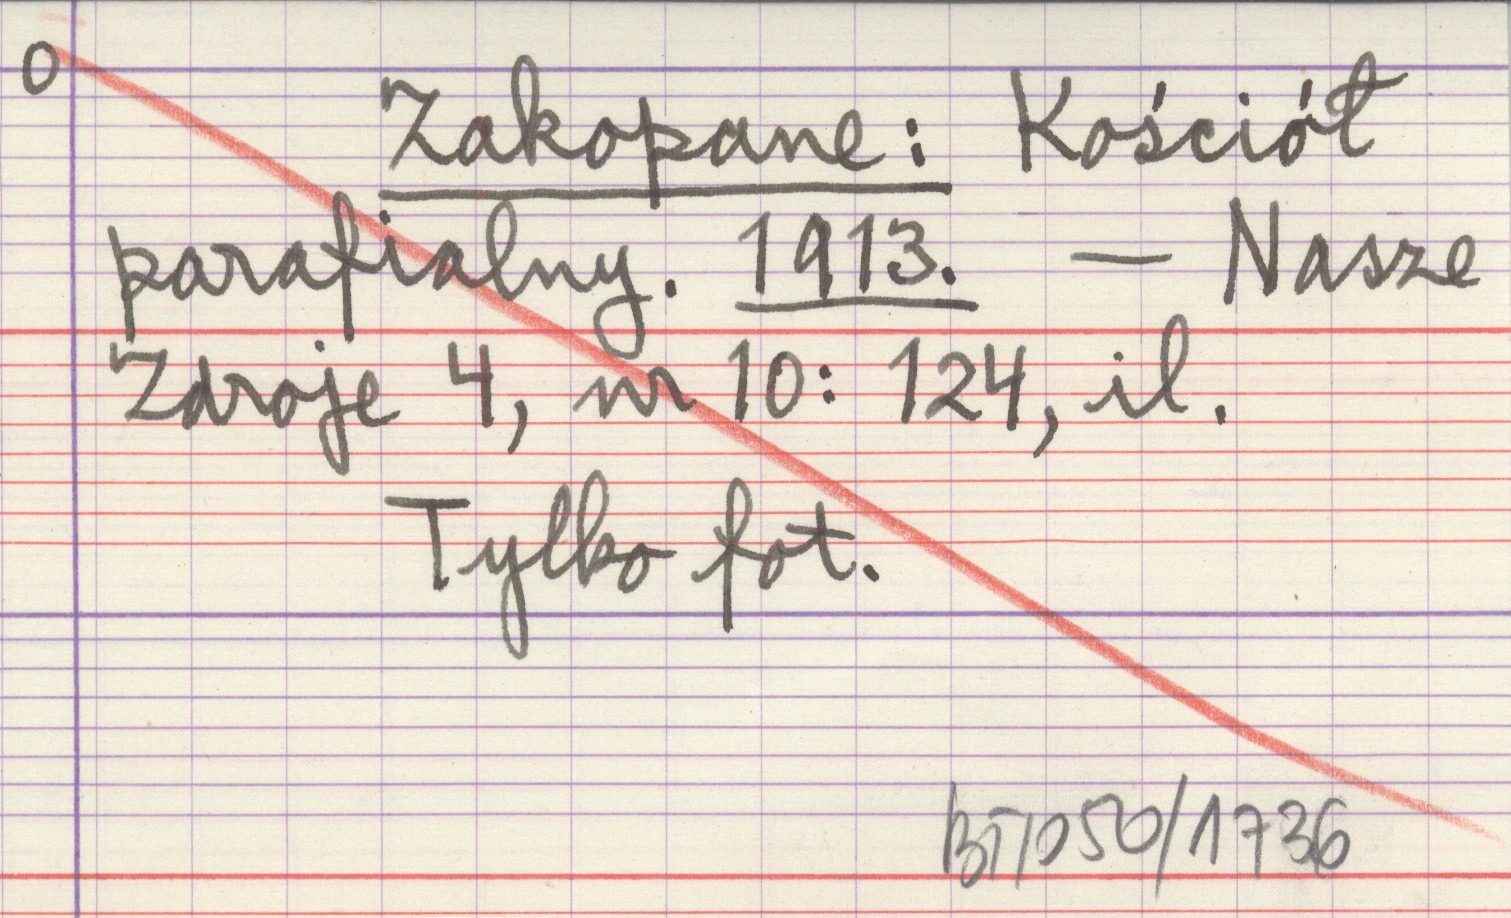 O
Zakopane: Kościół
parafialny. 1913. — Nasze
Zdroje 4, nr 10: 124, il.
Tylko fot.
BT/050/1736